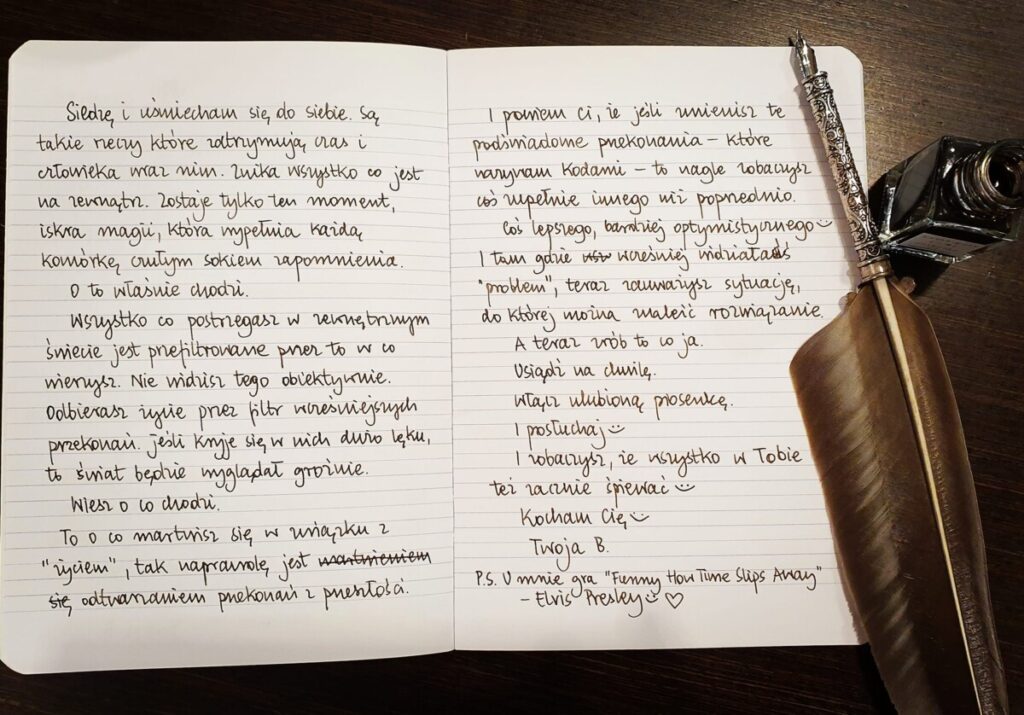 Siedzę i uśmiecham się do siebie. Są
takie rzeczy które zatrzymują czas i
człowieka wraz nim. Znika wszystko co jest
na zewnątrz. Zostaje tylko ten moment,
iskra magii, która wypełnia każdą
komórkę czułym sokiem zapomnienia.
O to właśnie chodzi.
Wszystko co postrzegasz w zewnętrznym
świecie jest przefiltrowane przez to w co
wierzysz. Nie widzisz tego obiektywnie.
Odbierasz życie przez filtr wcześniejszych
przekonań. Jeśli kryje się w nich dużo lęku,
to świat będzie wyglądał groźnie.
Wiesz o co chodzi.
To o co martwisz się w związku z
"życiem", tak naprawdę jest martwieniem
się odtwarzaniem przekonań z przeszłości.
I powiem Ci, że jeśli zmienisz te
podświadome przekonania – które
nazywam Kodami – to nagle zobaczysz
coś zupełnie innego niż poprzednio.
Coś lepszego, bardziej optymistycznego
I tam gdzie wcześniej widziałaś
"problem", teraz zauważysz sytuację,
do której można znaleźć rozwiązanie.
A teraz zrób to co ja.
Usiądź na chwilę.
Włącz ulubioną piosenkę.
I posłuchaj
I zobaczysz, że wszystko w Tobie
też zacznie śpiewać
Kocham Cię
Twoja B.
P.S. U mnie gra "Funny How Time Slips Away"
– Elvis Presley ♡